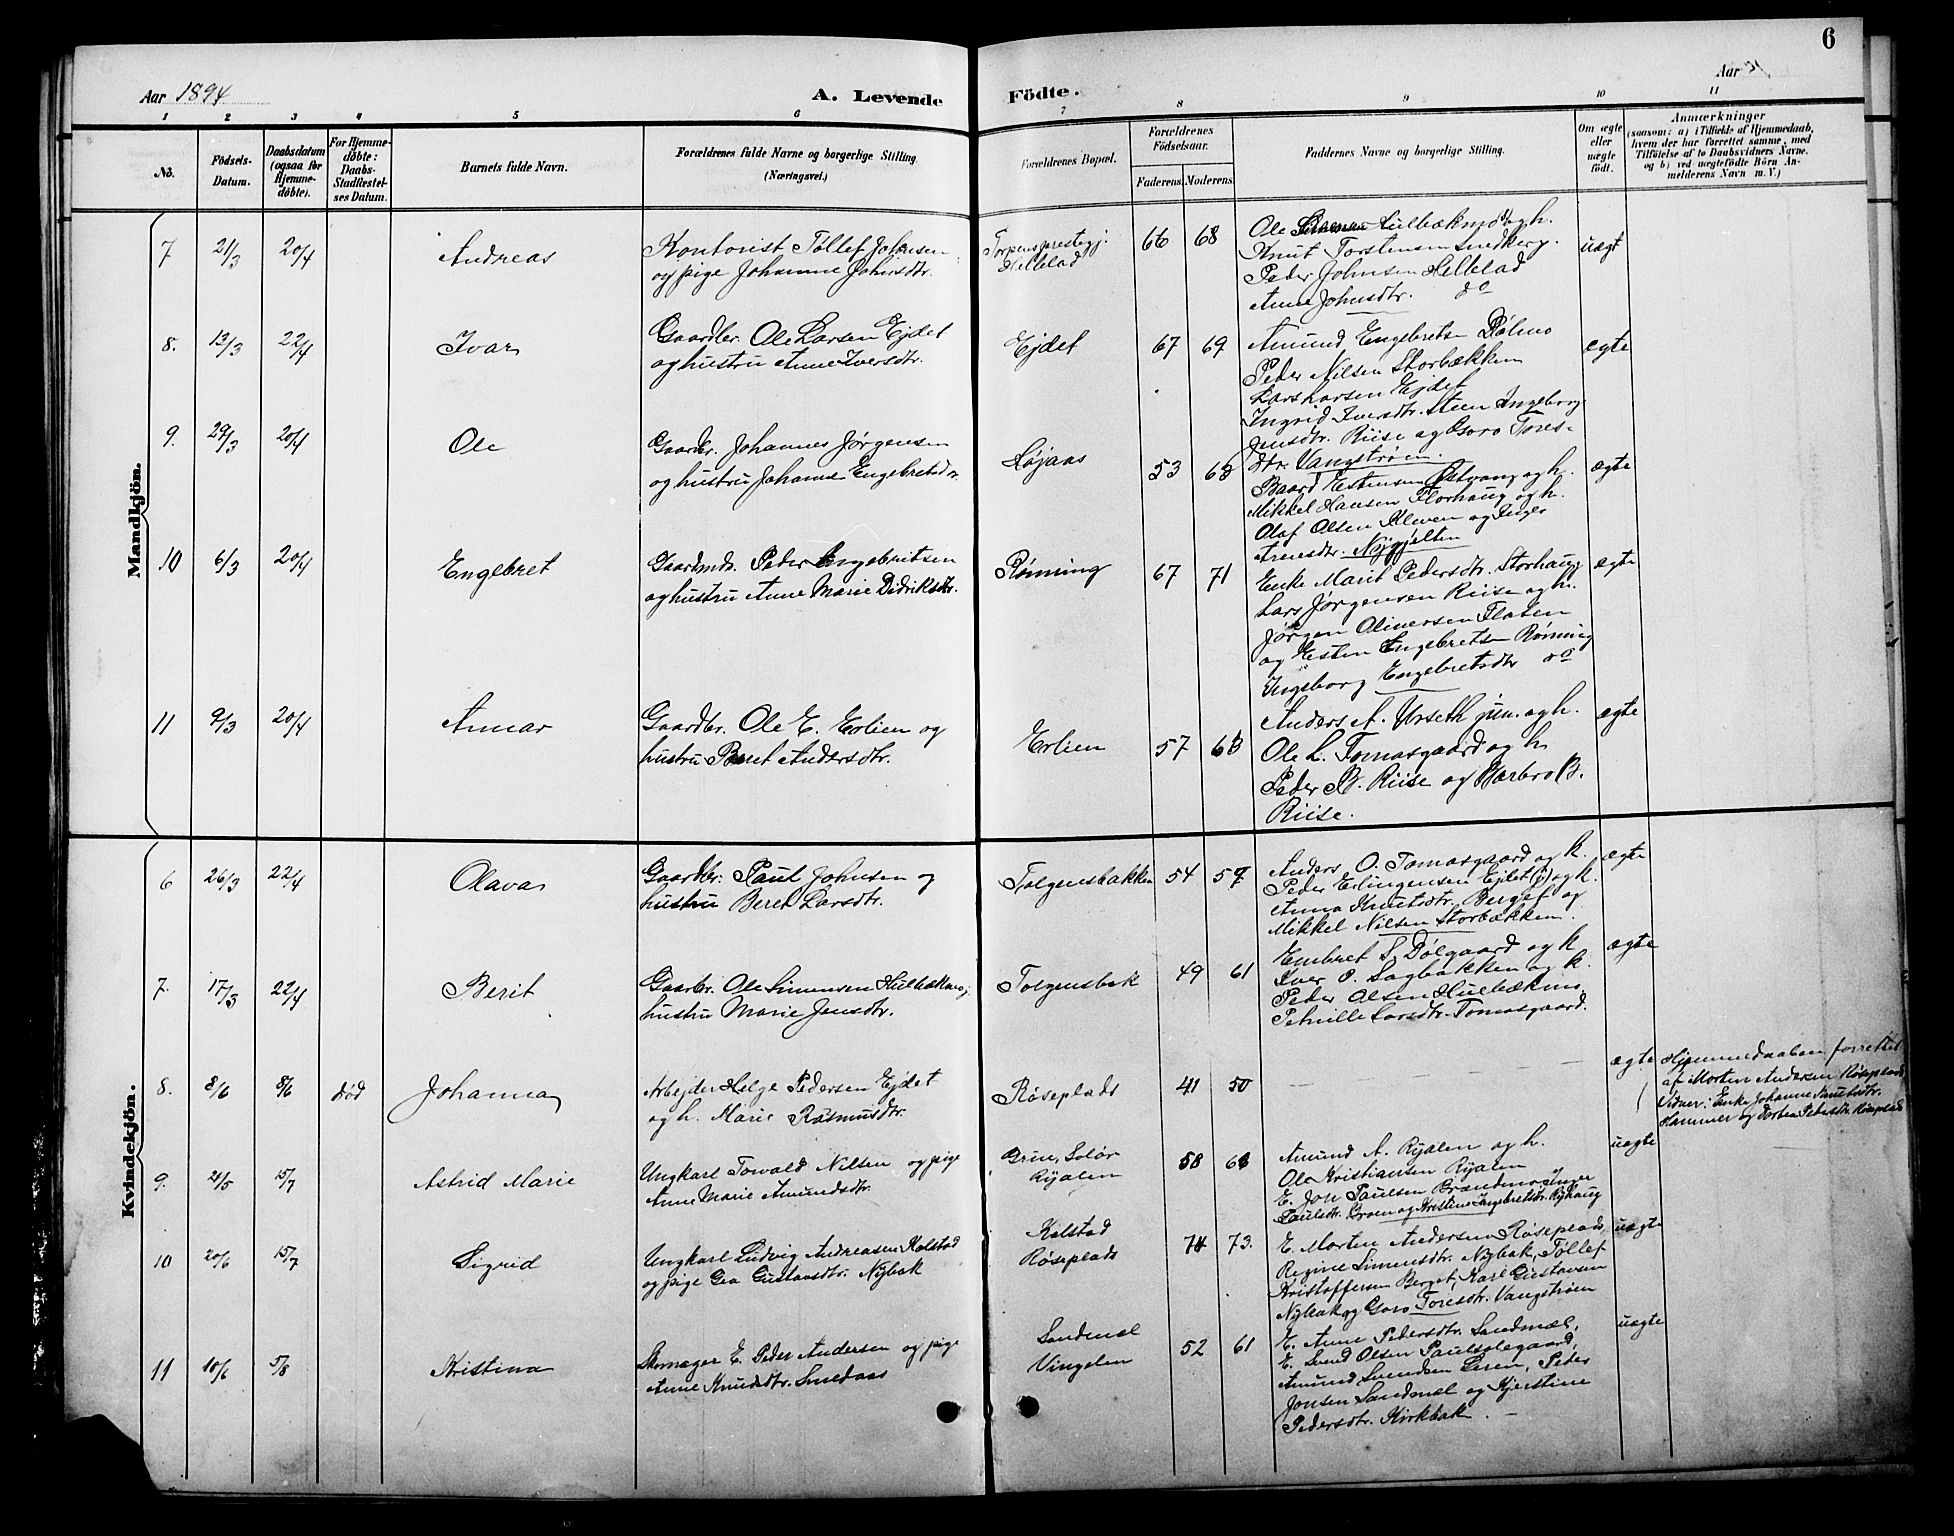 6
Aar 1894
A. Levende Födte.
Aar
1 2 3 4 5 6 7 8 9 10 11
No.
Födsels-Datum.
Daabsdatum (ogsaa for Hjemme-döbte).
For Hjemme-döbte: Daabs-Stadfæstel-ses Datum.
Barnets fulde Navn.
Forældrenes fulde Navne og borgerlige Stilling. (Næringsvei.)
Forældrenes Bopæl.
Forældrenes Födselsaar.
Faderens. Moderens.
Faddernes Navne og borgerlige Stilling.
Om ægte eller uægte født.
Anmærkninger
(saasom: a) i Tilfælde af Hjemmedaab,
hvem der har forrettet samme, med
Tilföielse af to Daabsvidners Navne,
og b) ved uegtefödte Börn An-
melderens Navn m. V.)
Mandkjön.
7 21/3 20/4 Andreas
Kontorist Tøllef Johnsen
og pige Johanne Johnsdtr.
Helblad
66 68
Ole Hulbækmo og h.
Knut Torstensen
Peder Johnsen Helblad
Anne Johnsdtr. do
uægt
8. 13/3 22/4 Ivar
Gaardbr. Ole Larsen Ejdet
og hustru Anne Iversdtr.
Ejdet
67 69
Amund Engebretsen Dølmo
Peder Nilsen Storbækken
Lars Larsen Ejdet
Ingrid Iversdtr. Steen Ingeborg
Jensdtr. Riise og Goro Tores-
dtr. Vangstrøm.
ægte
9. 29/3 20/4 Ole
Gaardbr. Johannes Jørgensen
og hustru Johanne Engebretsdtr.
Højaas
53 68
Baard Estensen Østvang og h.
Mikkel Hansen Florhaug og h.
Olaf Olsen Kleven og Inger
Arnesdtr. Nygjelten
ægte
10 6/3 20/4 Engebret
Gaardmd. Peder Engebritsen
og hustru Anne Marie Didriksdtr.
Rønning
67 71
Enke Marit Pedersdtr. Storhaug
Lars Jørgensen Riise og h.
Jørgen Oliversen Flaten
og Esten Engebretsen Rønning
Ingeborg Engebretsdtr do
ægte
11 9/3 20/4 Annar
Gaardbr. Ole E. Erlien og
hustru Beret Andersdtr.
Erlien
57 63
Anders A. Urseth jun. og h.
Ole L. Tomasgaard og h.
Peder B. Riise og Barbro B.
Riise.
ægte
Kvindekjön.
6 26/3 22/4 Olava
Gaardbr. Paul Johnsen og
hustru Beret Larsdtr.
Tolgensbakken
54 57
Anders O. Tomasgaard og k.
Peder Erlingensen Ejdet og k.
Anna Knutsdtr. Berget og
Mikkel Nilsen Storbækken.
ægte
7. 17/3 22/4 Berit
Gaarbr. Ole Simensen Hulbækmo
hustru Marie Jensdtr.
Tolgensbak
49 61
Embret S. Dølgaard og k
Iver O. Sagbakken og k.
Peder Olsen Hulbækmo
Petnille Larsdtr. Tomasgaard.
ægte
8. 8/6 8/6 død Johanna
Arbejder Helge Pedersen Ejdet
og h. Marie Rasmusdtr.
Røseplads
41 50
ægte
Hjemmedaaben forrettet
af Morten Andersen Røseplads
Vidner: Enke Johanne Knutsdtr.
Hammer og Dortea Pedersdtr. Røseplads
9. 21/5 15/7 Astrid Marie
Ungkarl Torvald Nilsen og pige
Anne Marie Amundsdtr.
Grue, Solør
Ryalen
58 68
Amund A. Ryalen og h.
Ole Kristiansen Ryalen
E. Jon Paulsen Brændmo, Inger
Paulsdtr. Broen og Kristine Ingebretsdtr. Ryhaug
uægte
10 20/6 15/7 Sigrid
Ungkarl Ludvig Andreasen Kolstad
og pige Gea Gustavsdtr. Nybak
Kolstad
Røseplads
71 73.
E. Morten Andersen Røseplads,
Regine Simensdtr. Nybak, Tøllef
Kristoffersen Berget, Karl Gustavsen
Nybak og Goro Toresdtr. Vangstrøm
uægte
11 10/6 5/8 Kristina
Skomager E. Peder Andersen og pige
Anne Knudsdtr. Smedaas
Sandmæl
Vingelen
52 61
E. Anne Pedersdtr. Sandmæl,
E. Svend Olsen Paulsølegaard,
Amund Svendsen Leren, Peder
Jonsen Sandmæl og Kjerstine
Pedersdtr. Kirkbak.
uægte